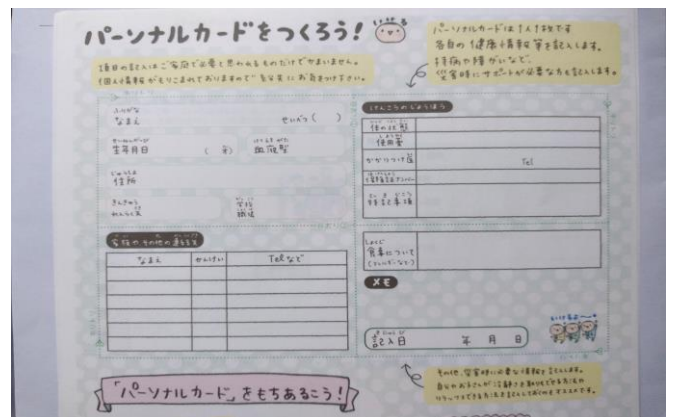 パーソナルカードをつくろう!
項目の記入はご家庭で必要と思われるものだけでかまいません。
個人情報がもりこまれておりますので
パーソナルカードは1人1枚です
各自の健康情報等を記入します。
持病や障がいなど、
災害時にサポートが必要な方も記入します。
ふりがな
なまえ
せいべつ( )
せいねんがっぴ
生年月日 ( 才)
けつえきがた
血液型
じゅうしょ
住所
きんきゅう
れんらく先
学校
職場
家族やその他の連絡先
なまえ かんけい Telなど
けんこうのじょうほう
体の状態
使用薬
かかりつけ医 Tel
特記事項
しょくじ
食事について
(アレルギーなど)
メモ
記入日 年 月 日
その他、災害時に必要な情報を記入します。
「パーソナルカード」をもちあるこう!